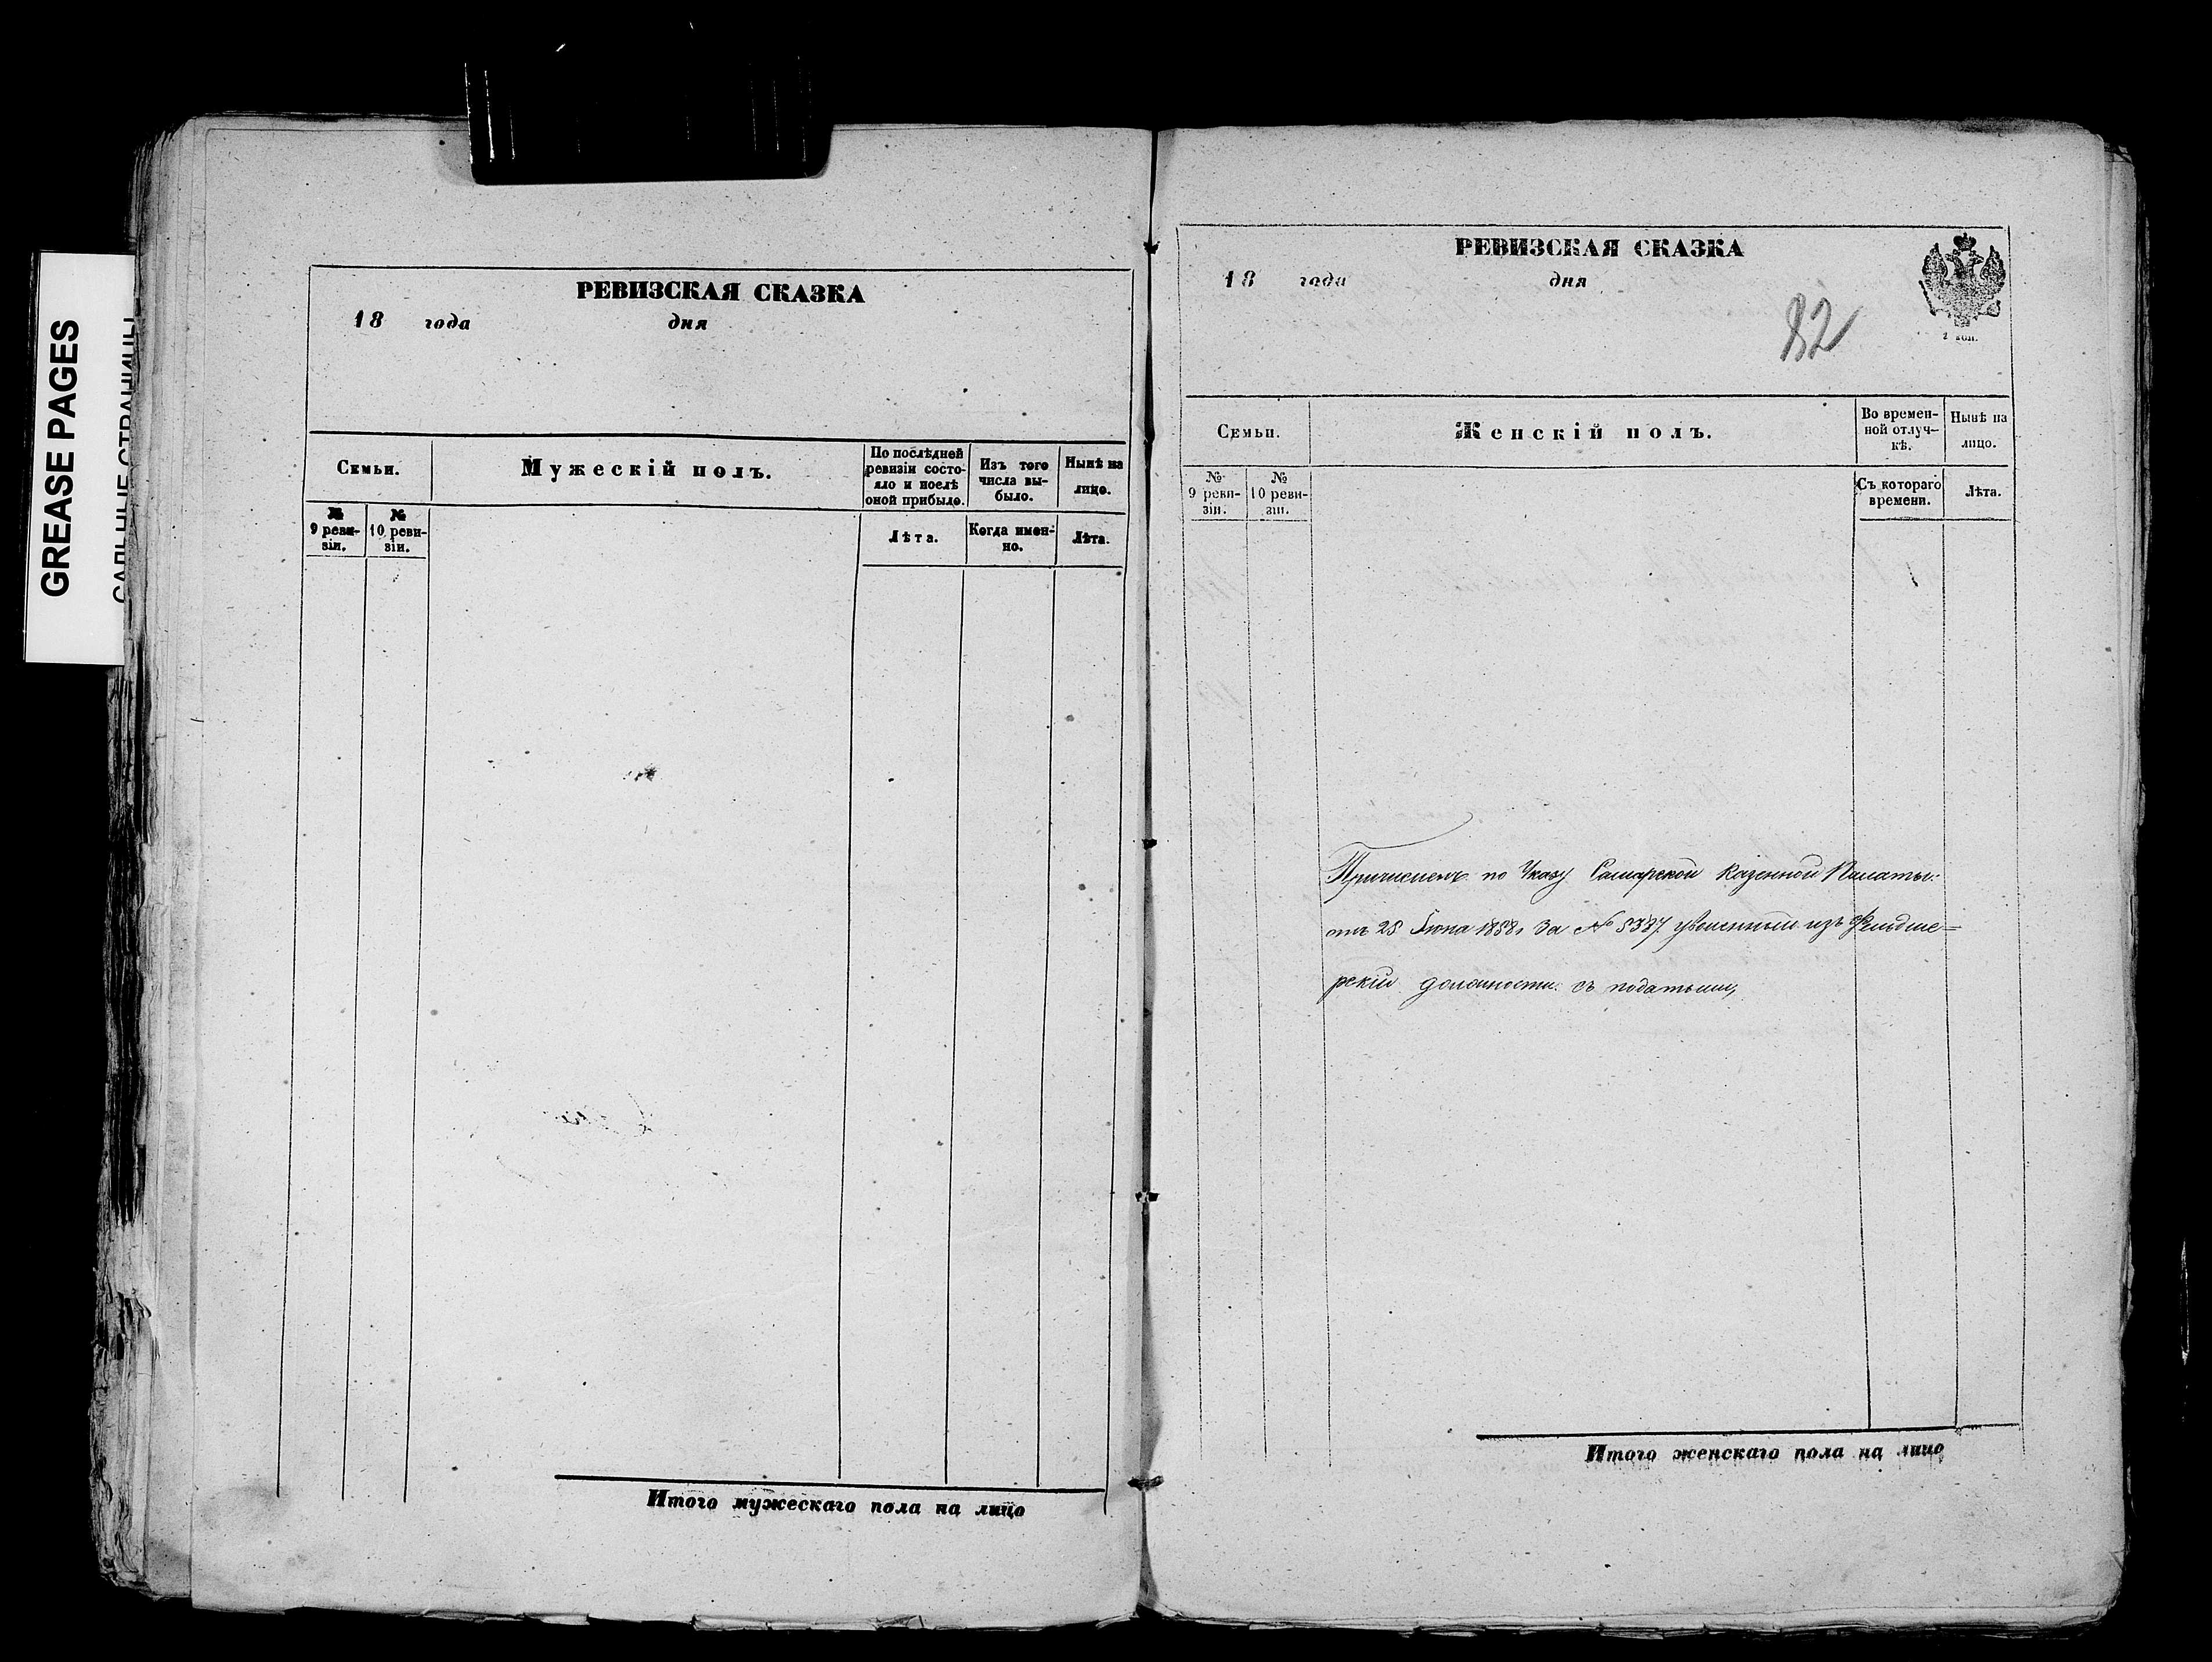 GREASE PAGES
РЕВИЗСКАЯ СКАЗКА
18 года дня
Семьи.
Мужескій полъ.
По послѣдней
ревизіи состо-
яло и послѣ
оной прибыло.
Изъ того
числа вы-
было.
Нынѣ на
лицо.
№
9 реви-
зіи.
№
10 реви-
зіи.
Лѣта.
Когда имен-
но.
Лѣта.
Итого мужескаго пола на лицо
РЕВИЗСКАЯ СКАЗКА
18 года дня
82
2 коп.
Семьи.
Женскій полъ.
Во времен-
ной отлуч-
кѣ.
Нынѣ на
лицо.
№
9 реви-
зіи.
№
10 реви-
зіи.
Съ котораго
времени.
Лѣта.
Причисленъ по Указу Самарской Казенной Палаты
отъ 28 Іюня 1858, за № 5387 уволенный изъ Фельдше=
рской должности съ
Итого женскаго пола на лицо